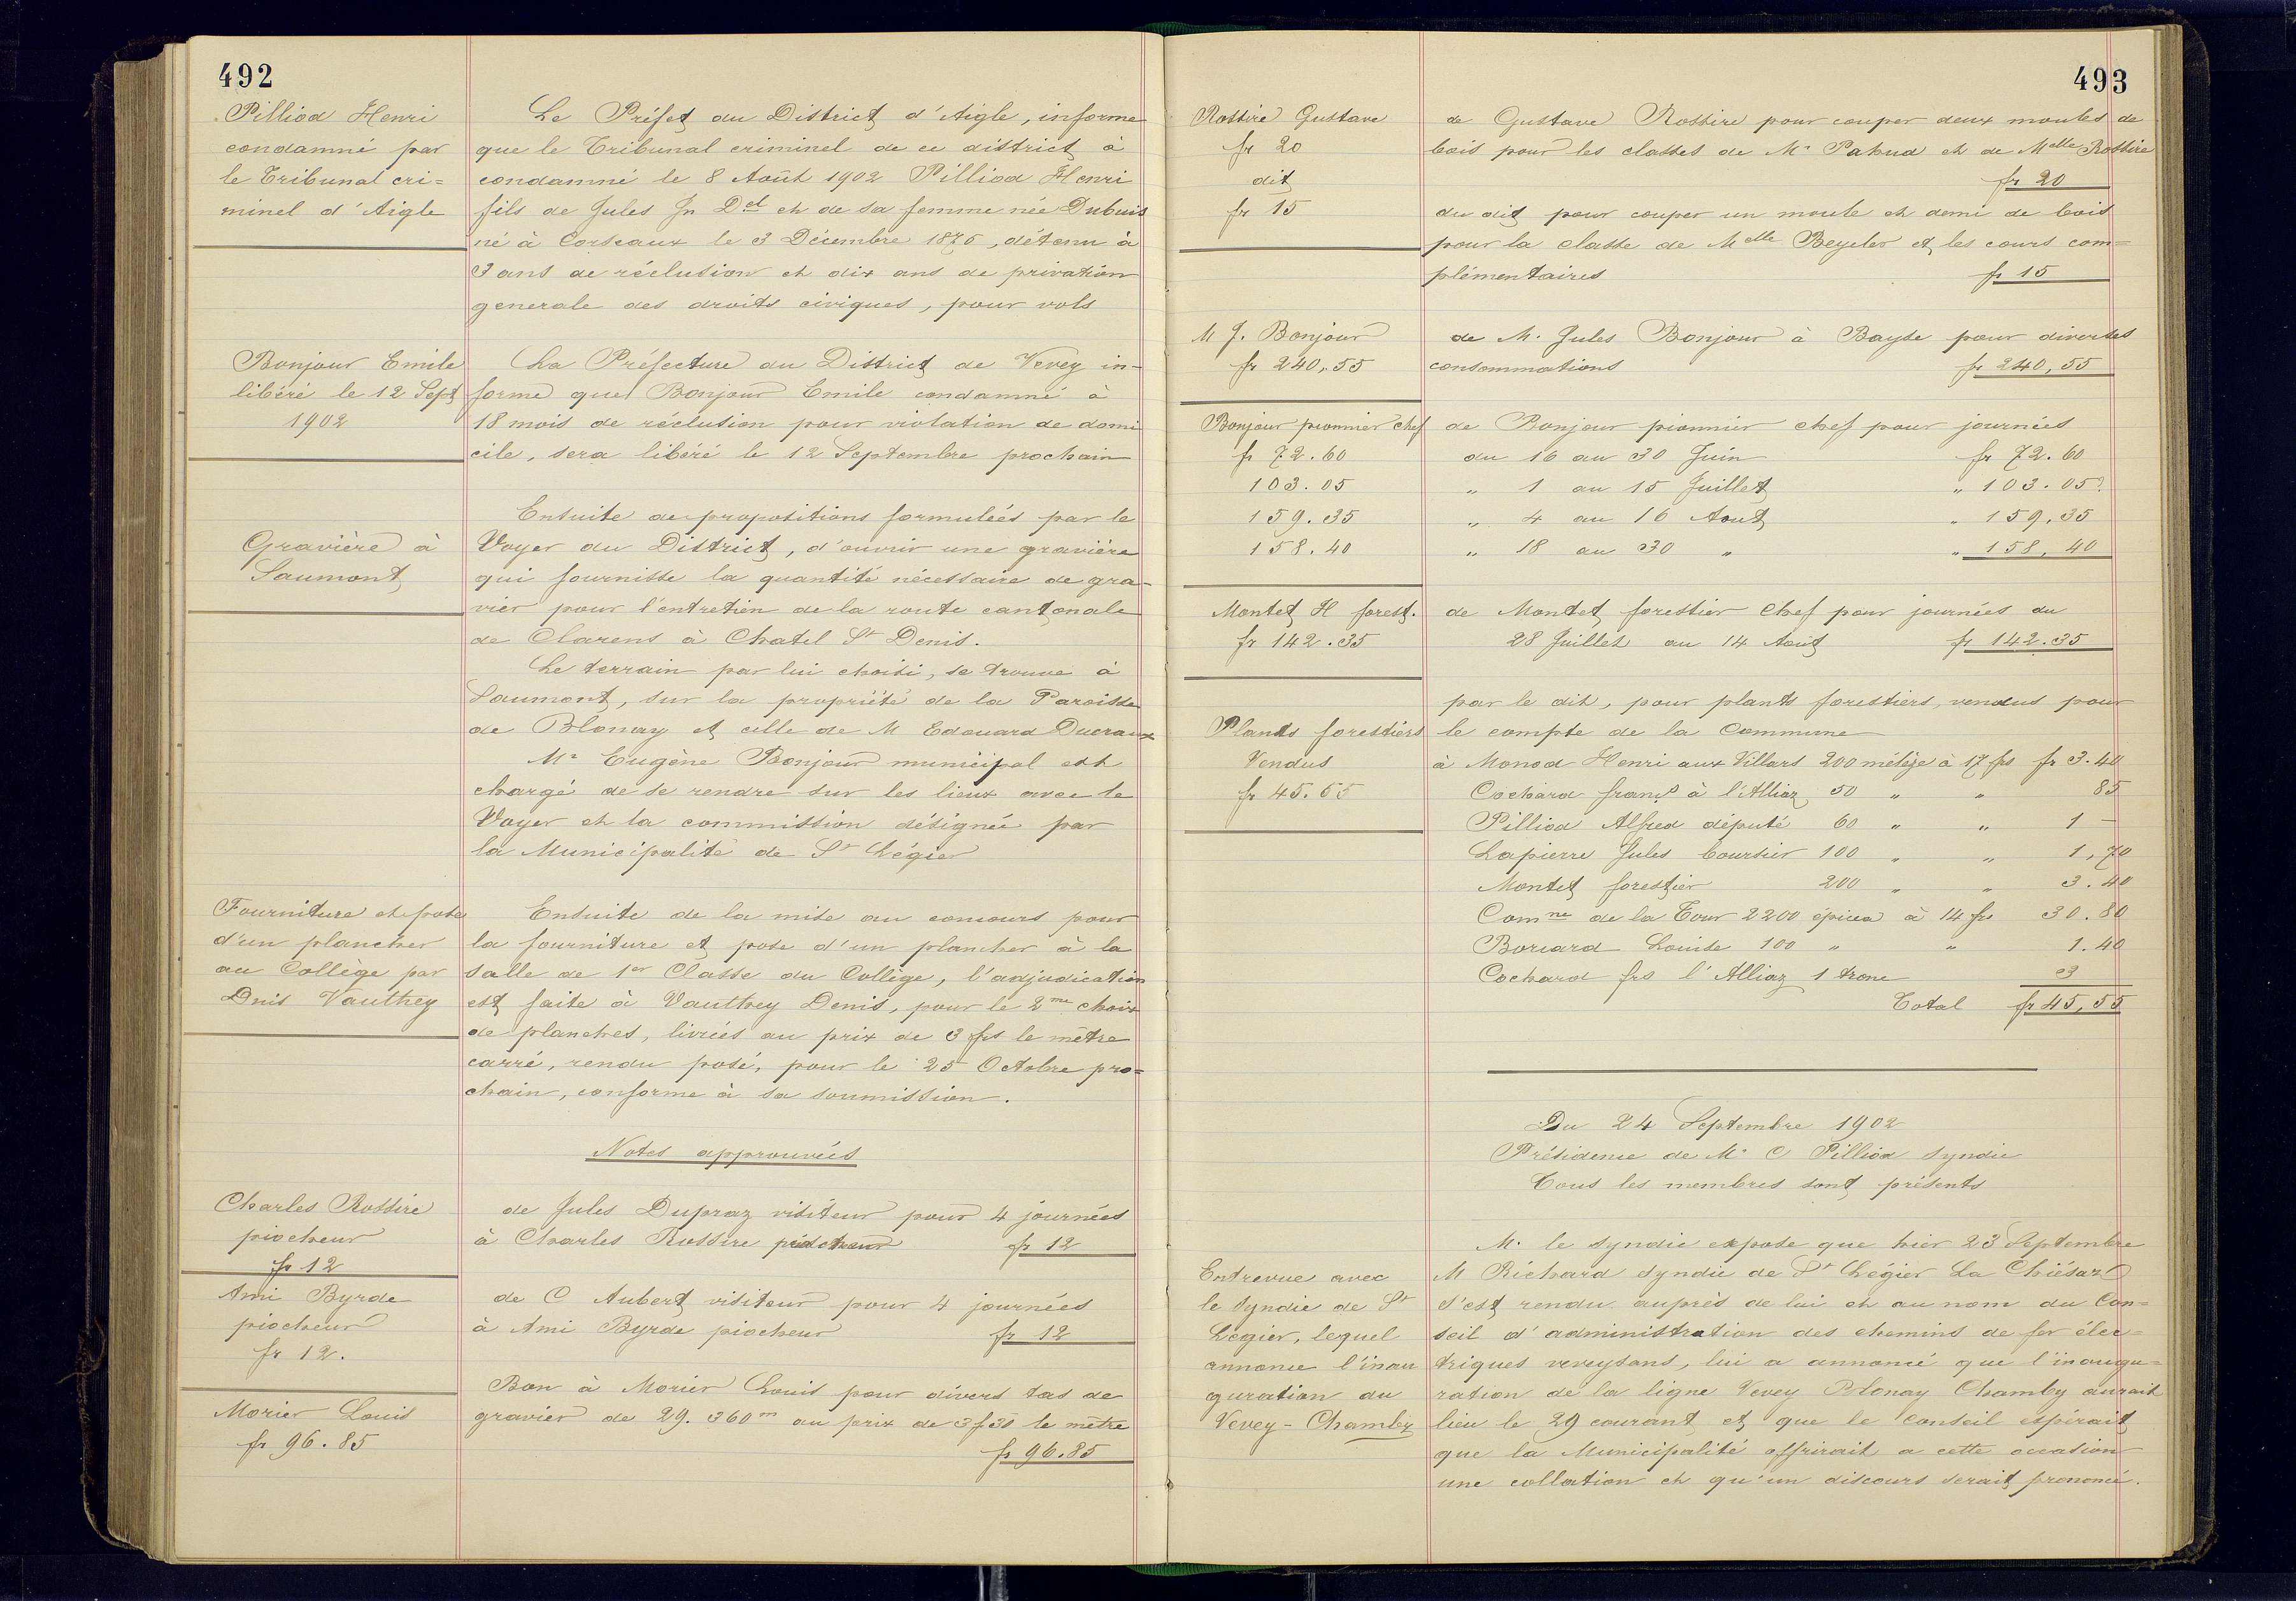 492
Pilliod Henri
condamné par
le Tribunal cri=
minel d'Aigle
Le Préfet du District d'Aigle, informe
que le Tribunal criminel de ce district à
condamné le 8 Août 1902 Pilliod Henri
fils de Jules Jn Del et de sa femme née Dubuis
né à Corseaux le 3 Décembre 1876, détenu à
3 ans de réclusion et dix ans de privation
generale des droits civiques, pour vols
Bonjour Emile
libéré le 12 Sept
1902
La Préfecture du District de Vevey in-
forme que Bonjour Emile condamné à
18 mois de réclusion pour violation de domi
cile, sera libéré le 12 Septembre prochain
Gravière à
Saumont
Ensuite de propositions formulées par le
Voyer du District, d'ouvrir une gravière
qui fournisse la quantité nécessaire de gra-
vier pour l'entretien de la route cantonale
de Clarens à Chatel St Denis.
Le terrain par lui choisi, se trouve à
Saumont, sur la propriété de la Paroisse
de Blonay et celle de M Edouard Ducraux
Mr Eugène Bonjour municipal est
chargé de se rendre sur les lieux avec le
Voyer et la commission désignée par
la Municipalité de St Légier
Fourniture et pose
d'un plancher
au Collège par
Dnis Vauthey
Ensuite de la mise au concours pour
la fourniture et pose d'un plancher à la
salle de 1er Classe du Collège, l'adjudication
est faite à Vauthey Denis, pour le 2me choix
de planches, livrées au prix de 3 frs le mètre
carré, rendu posé, pour le 25 Octobre pro=
chain, conforme à sa soumission.
Notes approuvées
Charles Rossire
piocheur
fr 12
de Jules Dupraz visiteur pour 4 journées
à Charles Rossire piocheur fr 12
Ami Byrde
piocheur
fr 12.
de C Aubert visiteur pour 4 journées
à Ami Byrde piocheur fr 12
Morier Louis
fr 96.85
Bon à Morier Louis pour divers tas de
gravier de 29.360m au prix de 3 f 30 le mètre
fr 96.85
493
Rossire Gustave
fr 20
dit
fr 15
de Gustave Rossire pour couper deux moules de
bois pour les classes de Mr Pahud et de Melle Rossire
fr 20
du dit pour couper un moule et demi de bois
pour la classe de Melle Beyeler et les cours com=
plémentaires fr 15
M J. Bonjour
fr 240.55
de M. Jules Bonjour à Bayse pour diverses
consommations fr 240,55
Bonjour pionnier chef
fr 72.60
103.05
159.35
158.40
de Bonjour pionnier chef pour journées
du 16 au 30 Juin fr 72.60
" 1 au 15 Juillet " 103.05
" 4 au 16 Aout " 159.35
" 18 au 30 " " 158,40
Montet H forest.
fr 142.35
de Montet forestier chef pour journées du
28 Juillet au 14 Août fr 142.35
Plants forestiers
Vendus
fr 45.55
par le dit, pour plants forestiers, vendus pour
le compte de la Commune
à Monod Henri aux Villars 200 mélèze à 17 frs fr 3.40
Cochard françs à l'Alliaz 50 " " 85
Pilliod Alfred député 60 " " 1 -
Lapierre Jules boursier 100 " " 1,70
Montet forestier 200 " " 3.40
Comne de la Tour 2200 épicea à 14 frs 30.80
Boriard Louise 100 " " 1.40
Cochard frs l'Alliaz 1 trone 3
Total fr 45,55
Du 24 Septembre 1902
Présidence de Mr C Pilliod syndic
Tous les membres sont présents
Entrevue avec
le syndic de St
Légier, lequel
annonce l'inau
guration du
Vevey - Chamby
M. le syndic expose que hier 23 Septembre
M Richard syndic de St Légier La Chiésaz
s'est rendu auprès de lui et au nom du Con=
seil d'administration des chemins de fer élec=
triques veveysans, lui a annoncé que l'inaugu=
ration de la ligne Vevey Blonay Chamby aurait
lieu le 29 courant et que le conseil espérait
que la Municipalité offrirait a cette occasion
une collation et qu'un discours serait prononcé.